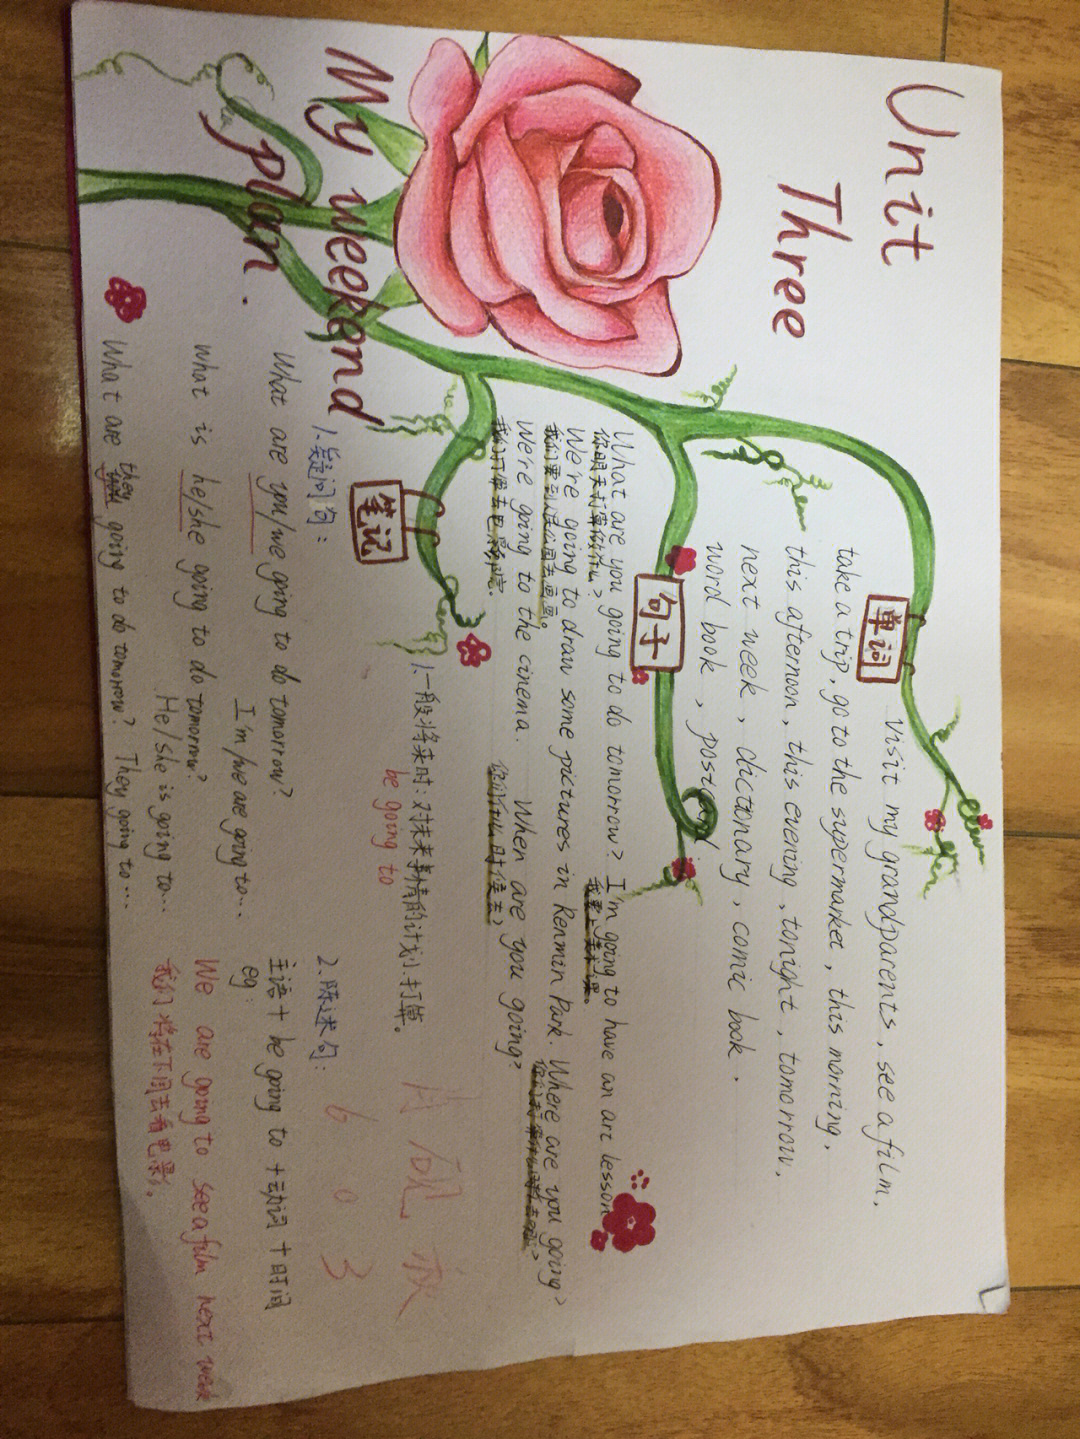 Unit
Three
My weekend
plan.
单词
visit my grandparents, see a film,
take a trip, go to the supermarket, this morning,
this afternoon, this evening, tonight, tomorrow,
next week, dictionary, comic book.
word book, postcard
句子
What are you going to do tomorrow? I'm going to have an art lesson
你明天打算做什么? 我要上美术课。
We're going to draw some pictures in Renmin Park. Where are you going?
我们要到人民公园去画画。
We're going to the cinema. When are you going?
我们打算去电影院. 你们什么时候去?
笔记
1.一般将来时:对未来事情的计划.打算。
be going to
1.疑问句:
What are you/we going to do tomorrow?
I'm/we are going to...
What is he/she going to do tomorrow?
He/she is going to...
What are they going to do tomorrow? They going to...
2.陈述句:
主语+be going to +动词+时间
eg:
We are going to see a film next week
我们将在下周去看电影。
603